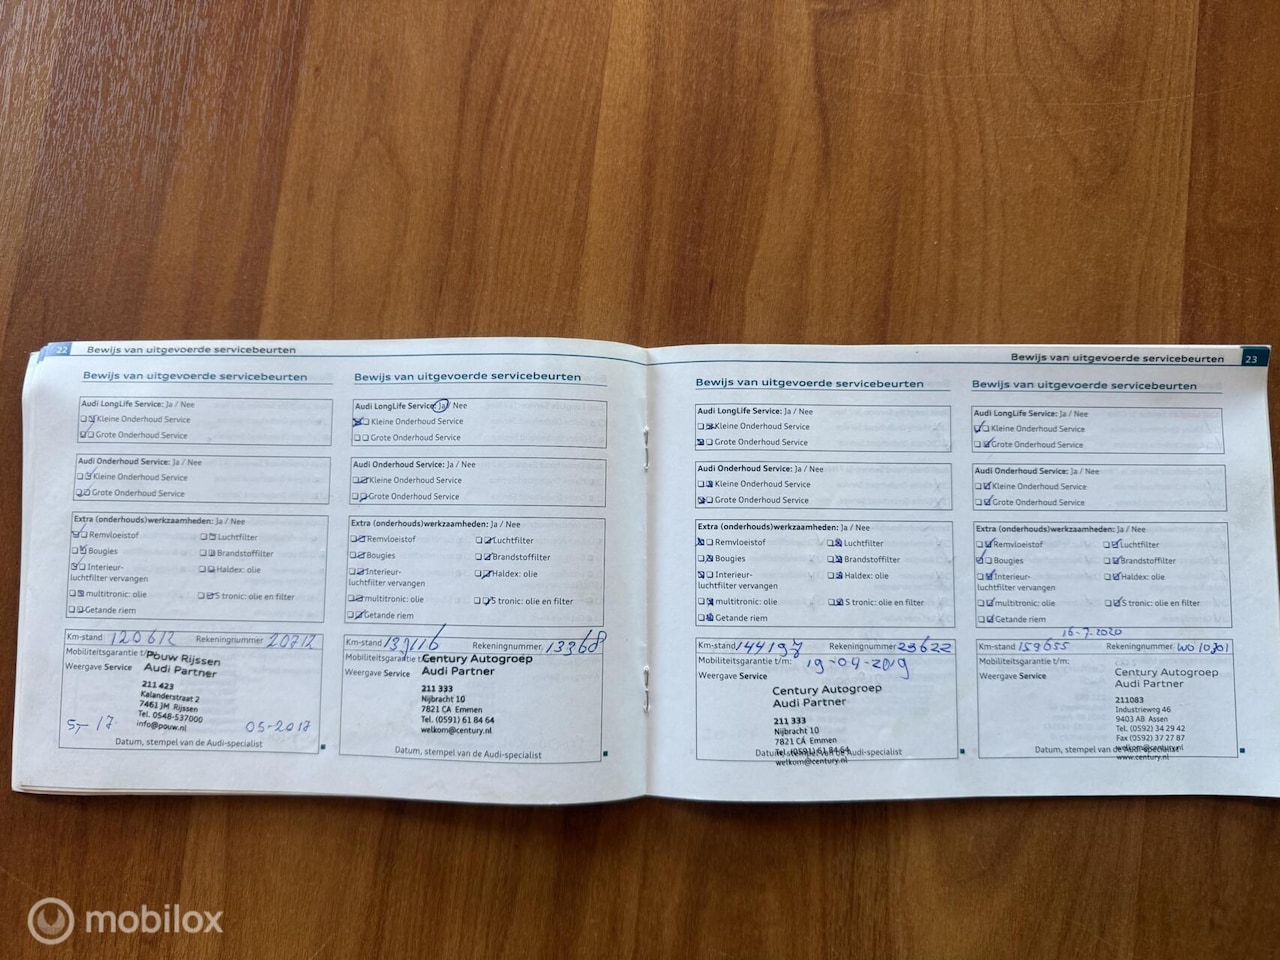 22 Bewijs van uitgevoerde servicebeurten
Bewijs van uitgevoerde servicebeurten
Audi LongLife Service: Ja / Nee
Kleine Onderhoud Service
Grote Onderhoud Service
Audi Onderhoud Service: Ja / Nee
Kleine Onderhoud Service
Grote Onderhoud Service
Extra (onderhouds)werkzaamheden: Ja / Nee
Remvloeistof Luchtfilter
Bougies Brandstoffilter
Interieur- Haldex: olie
luchtfilter vervangen
multitronic: olie S tronic: olie en filter
Getande riem
Km-stand 120612 Rekeningnummer 20712
Mobiliteitsgarantie t/m:
Weergave Service
Pouw Rijssen
Audi Partner
211 423
Kalanderstraat 2
7461 JM Rijssen
Tel. 0548-537000
info@pouw.nl
5-17 05-2017
Datum, stempel van de Audi-specialist
Bewijs van uitgevoerde servicebeurten
Audi LongLife Service: Ja / Nee
Kleine Onderhoud Service
Grote Onderhoud Service
Audi Onderhoud Service: Ja / Nee
Kleine Onderhoud Service
Grote Onderhoud Service
Extra (onderhouds)werkzaamheden: Ja / Nee
Remvloeistof Luchtfilter
Bougies Brandstoffilter
Interieur- Haldex: olie
luchtfilter vervangen
multitronic: olie S tronic: olie en filter
Getande riem
Km-stand Rekeningnummer 13368
Mobiliteitsgarantie t/m:
Weergave Service
Century Autogroep
Audi Partner
211 333
Nijbracht 10
7821 CA Emmen
Tel. (0591) 61 84 64
welkom@century.nl
Datum, stempel van de Audi-specialist
Bewijs van uitgevoerde servicebeurten 23
Bewijs van uitgevoerde servicebeurten
Audi LongLife Service: Ja / Nee
Kleine Onderhoud Service
Grote Onderhoud Service
Audi Onderhoud Service: Ja / Nee
Kleine Onderhoud Service
Grote Onderhoud Service
Extra (onderhouds)werkzaamheden: Ja / Nee
Remvloeistof Luchtfilter
Bougies Brandstoffilter
Interieur- Haldex: olie
luchtfilter vervangen
multitronic: olie S tronic: olie en filter
Getande riem
Km-stand Rekeningnummer 23622
Mobiliteitsgarantie t/m: 19-04-2019
Weergave Service
Century Autogroep
Audi Partner
211 333
Nijbracht 10
7821 CA Emmen
Tel. (0591) 61 84 64
Datum, stempel van de Audi-specialist
welkom@century.nl
Bewijs van uitgevoerde servicebeurten
Audi LongLife Service: Ja / Nee
Kleine Onderhoud Service
Grote Onderhoud Service
Audi Onderhoud Service: Ja / Nee
Kleine Onderhoud Service
Grote Onderhoud Service
Extra (onderhouds)werkzaamheden: Ja / Nee
Remvloeistof Luchtfilter
Bougies Brandstoffilter
Interieur- Haldex: olie
luchtfilter vervangen
multitronic: olie S tronic: olie en filter
Getande riem
16-7-2020
Km-stand 159655 Rekeningnummer WO10301
Mobiliteitsgarantie t/m:
Weergave Service
Century Autogroep
Audi Partner
211083
Industrieweg 46
9403 AB Assen
Tel. (0592) 34 29 42
Fax (0592) 37 27 87
welkom@century.nl
Datum, stempel van de Audi-specialist
www.century.nl
mobilox